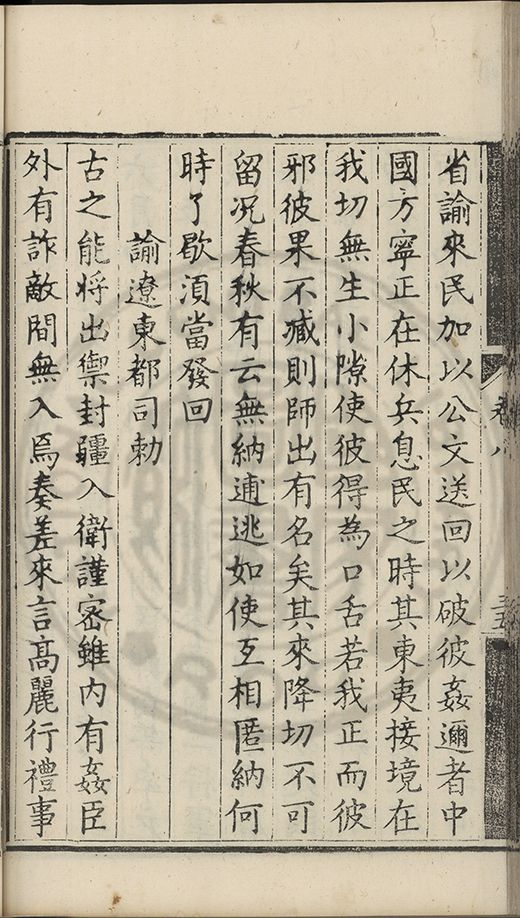 省諭來民加以公文送回以破彼姦邇者中
國方寧正在休兵息民之時其東夷接境在
我切無生小隙使彼得為口舌若我正而彼
邪彼果不臧則師出有名矣其來降切不可
留况春秋有云無納逋逃如使互相匿納何
時了歇湏當發回
諭遼東都司勅
古之能将出禦封疆入衛謹宻雖内有姦臣
外有詐敵間無入焉奏差來言高麗行禮事
卷八